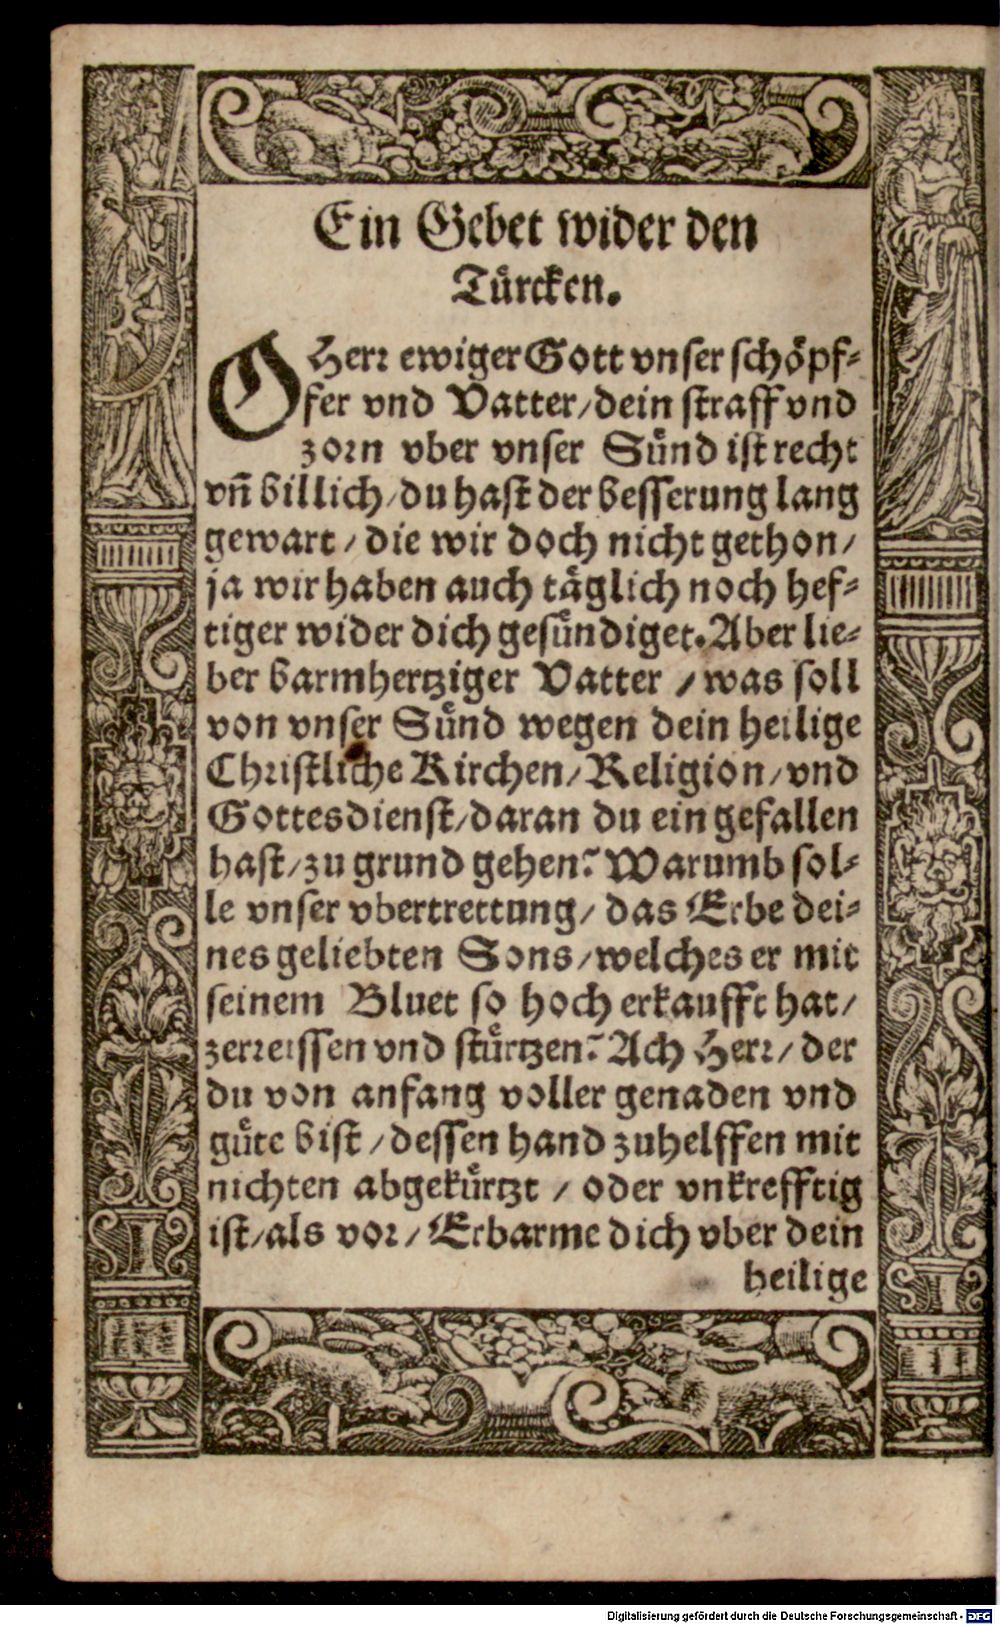 Ein Gebet wider den
Tuͤrcken.
O Herr ewiger Gott vnser schoͤpf⸗
fer vnd Vatter/dein straff vnd
zorn vber vnser Suͤnd ist recht
vn̄ billich/du hast der besserung lang
gewart/die wir doch nicht gethon/
ja wir haben auch taͤglich noch hef⸗
tiger wider dich gesuͤndiget. Aber lie⸗
ber barmhertziger Vatter/was soll
von vnser Suͤnd wegen dein heilige
Christliche Kirchen/Religion/vnd
Gottesdienst/daran du ein gefallen
hast/zu grund gehen? Warumb sol⸗
le vnser vbertrettung/das Erbe dei⸗
nes geliebten Sons/welches er mit
seinem Bluet so hoch erkaufft hat/
zerreissen vnd stuͤrtzen? Ach Herr/der
du von anfang voller genaden vnd
guͤte bist/dessen hand zuhelffen mit
nichten abgekuͤrtzt/oder vnkrefftig
ist/als vor/Erbarme dich vber dein
heilige
Digitalisierung gefördert durch die Deutsche Forschungsgemeinschaft - DFG